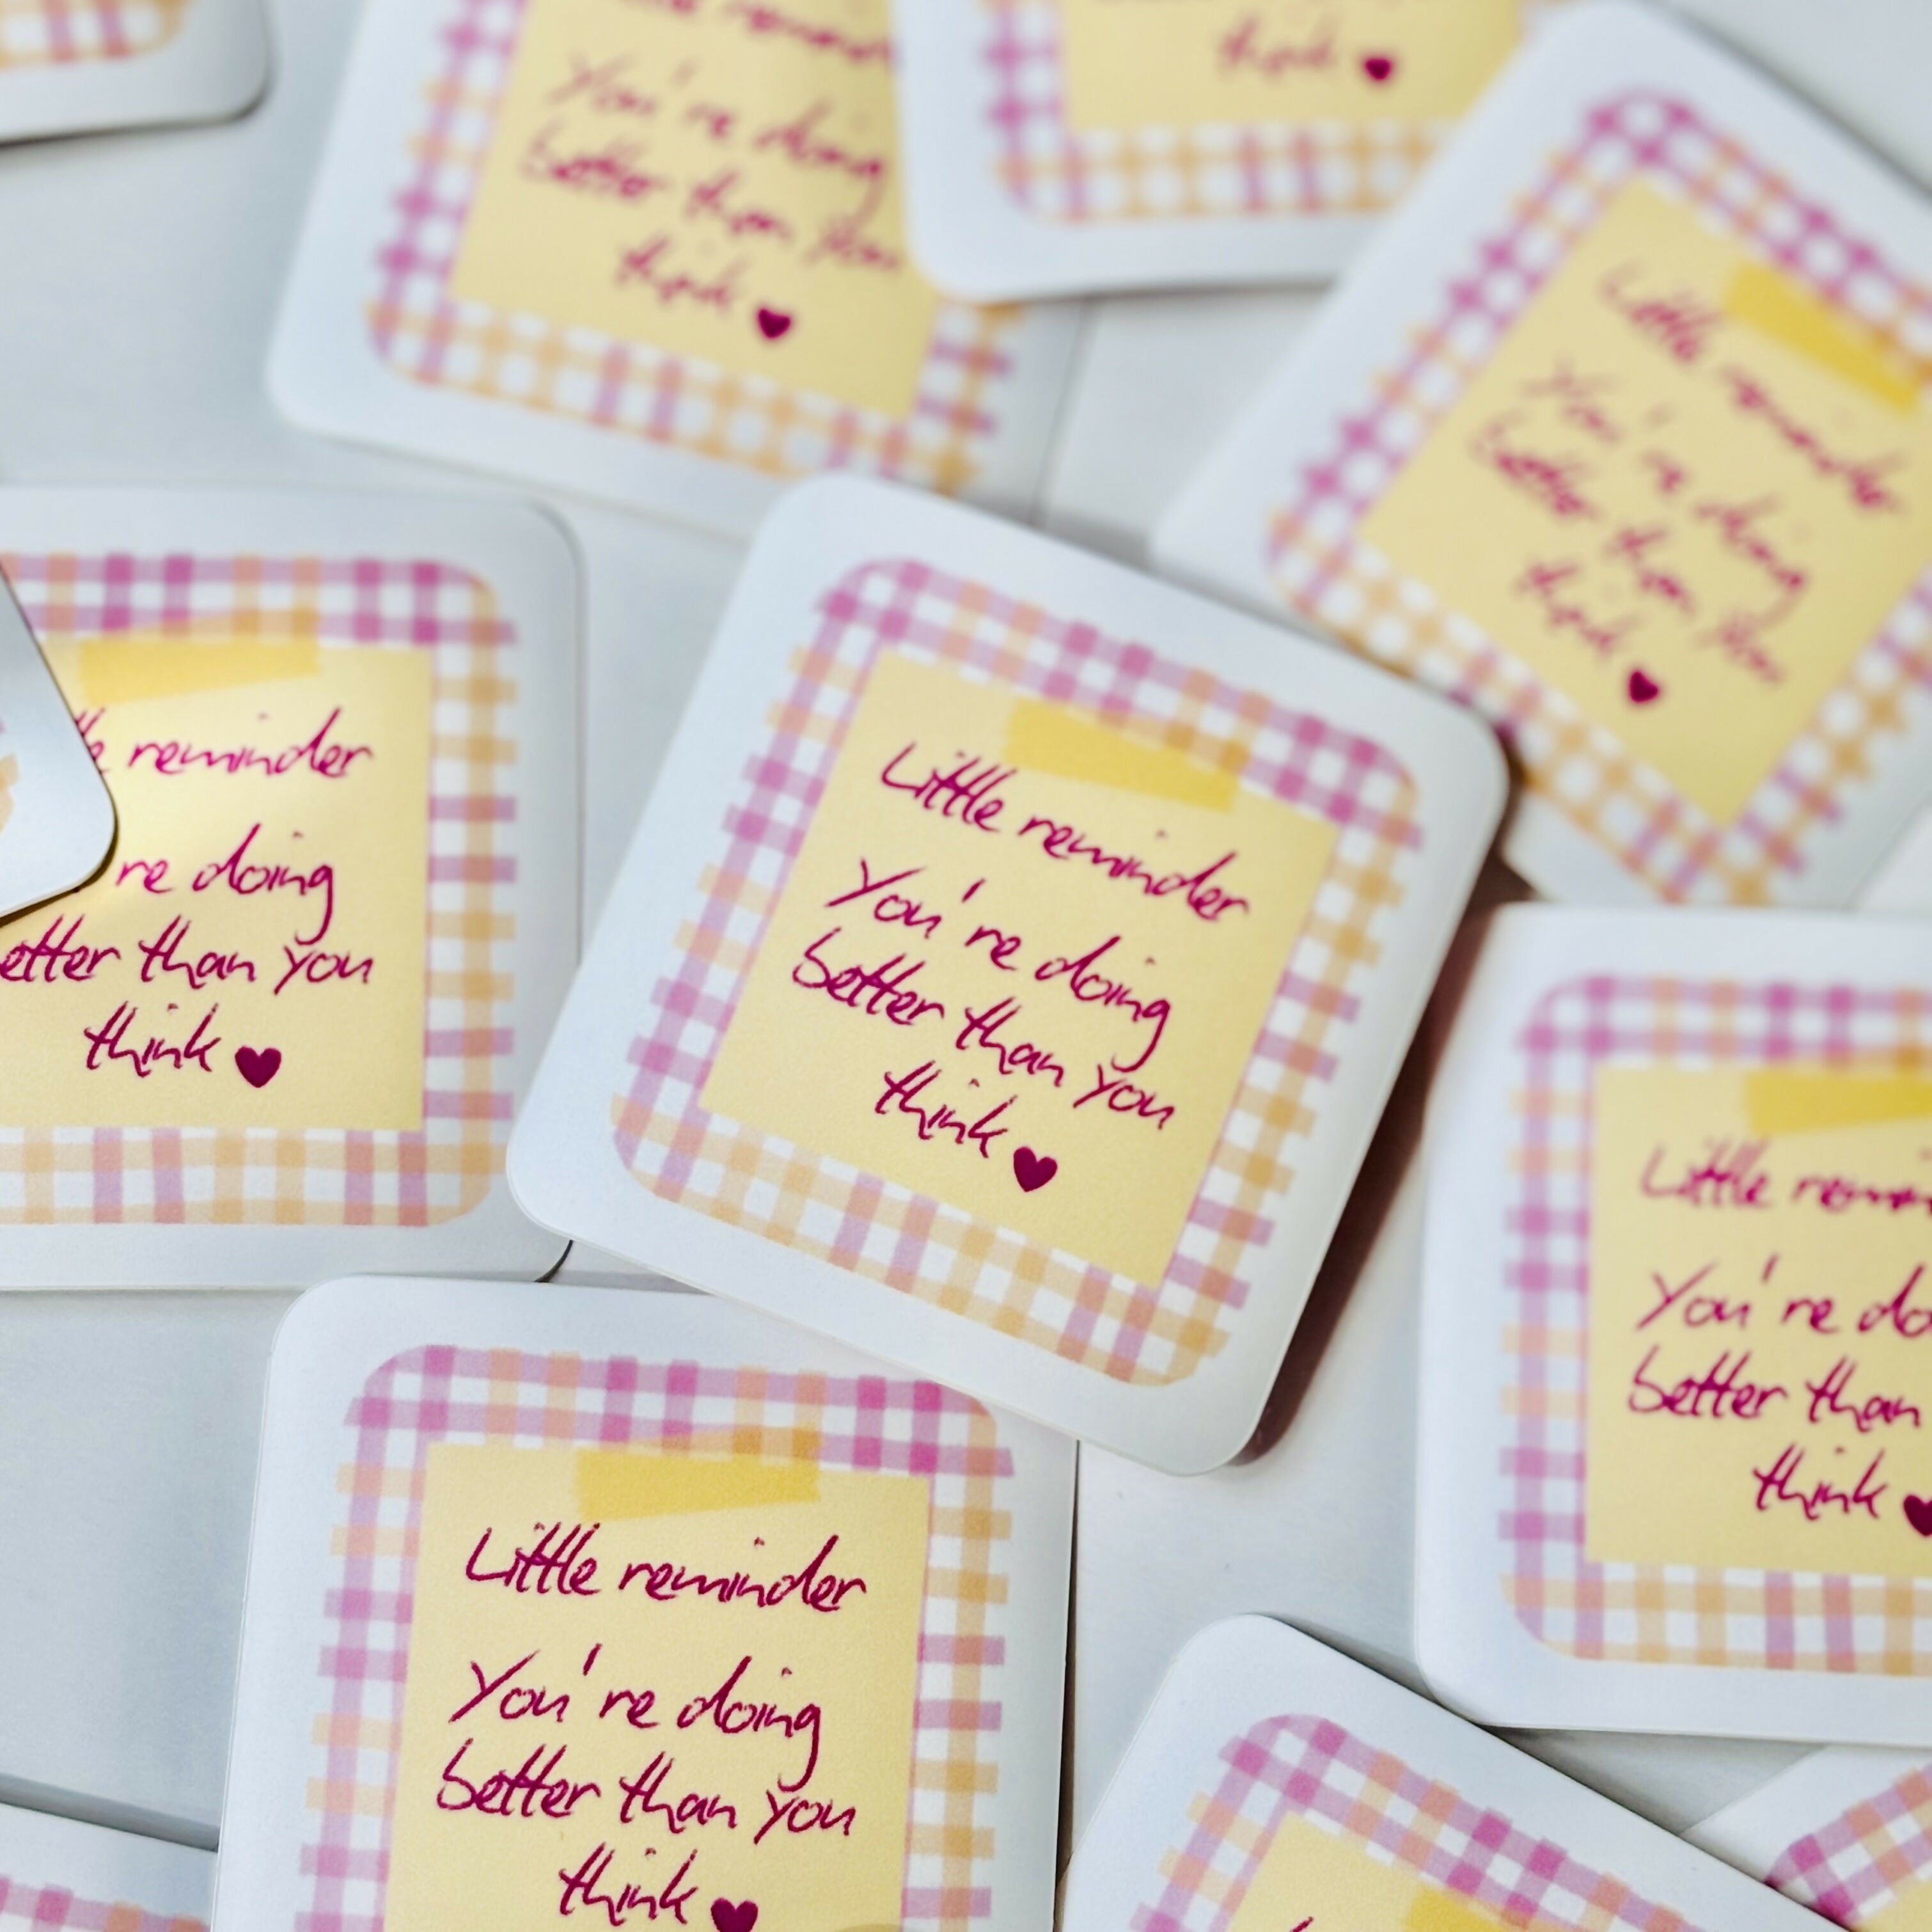 You're doing
better than you
think
think
Little reminder
You're doing
better than you
think
reminder
re doing
than you
think
Little reminder
You're doing
better than you
think
Little
You're
better than
think
Little reminder
You're doing
better than you
think